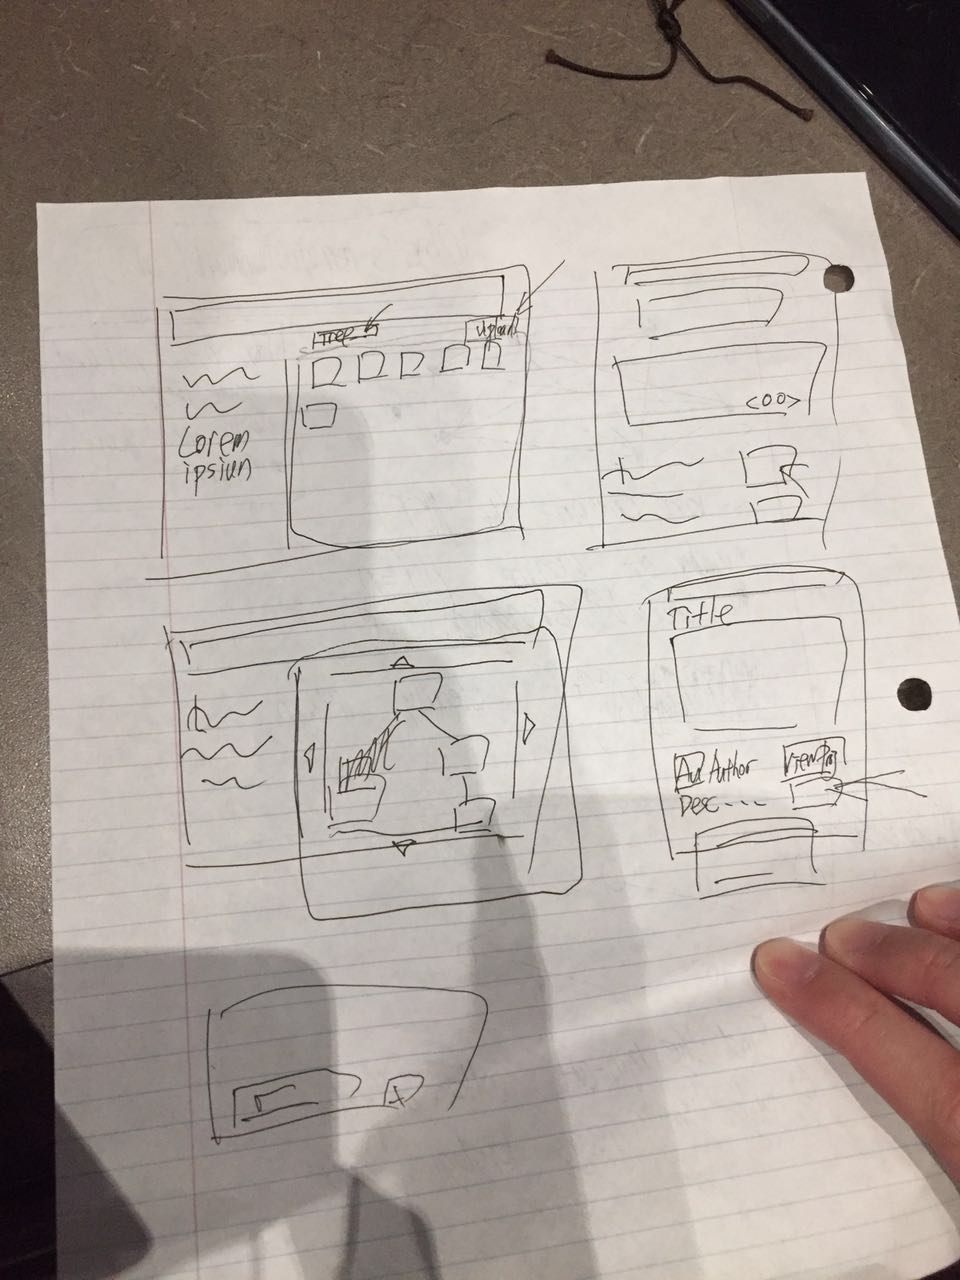 Tree
Upload
Lorem
ipsium
<00>
Title
Au Author
View Prj
Desc....